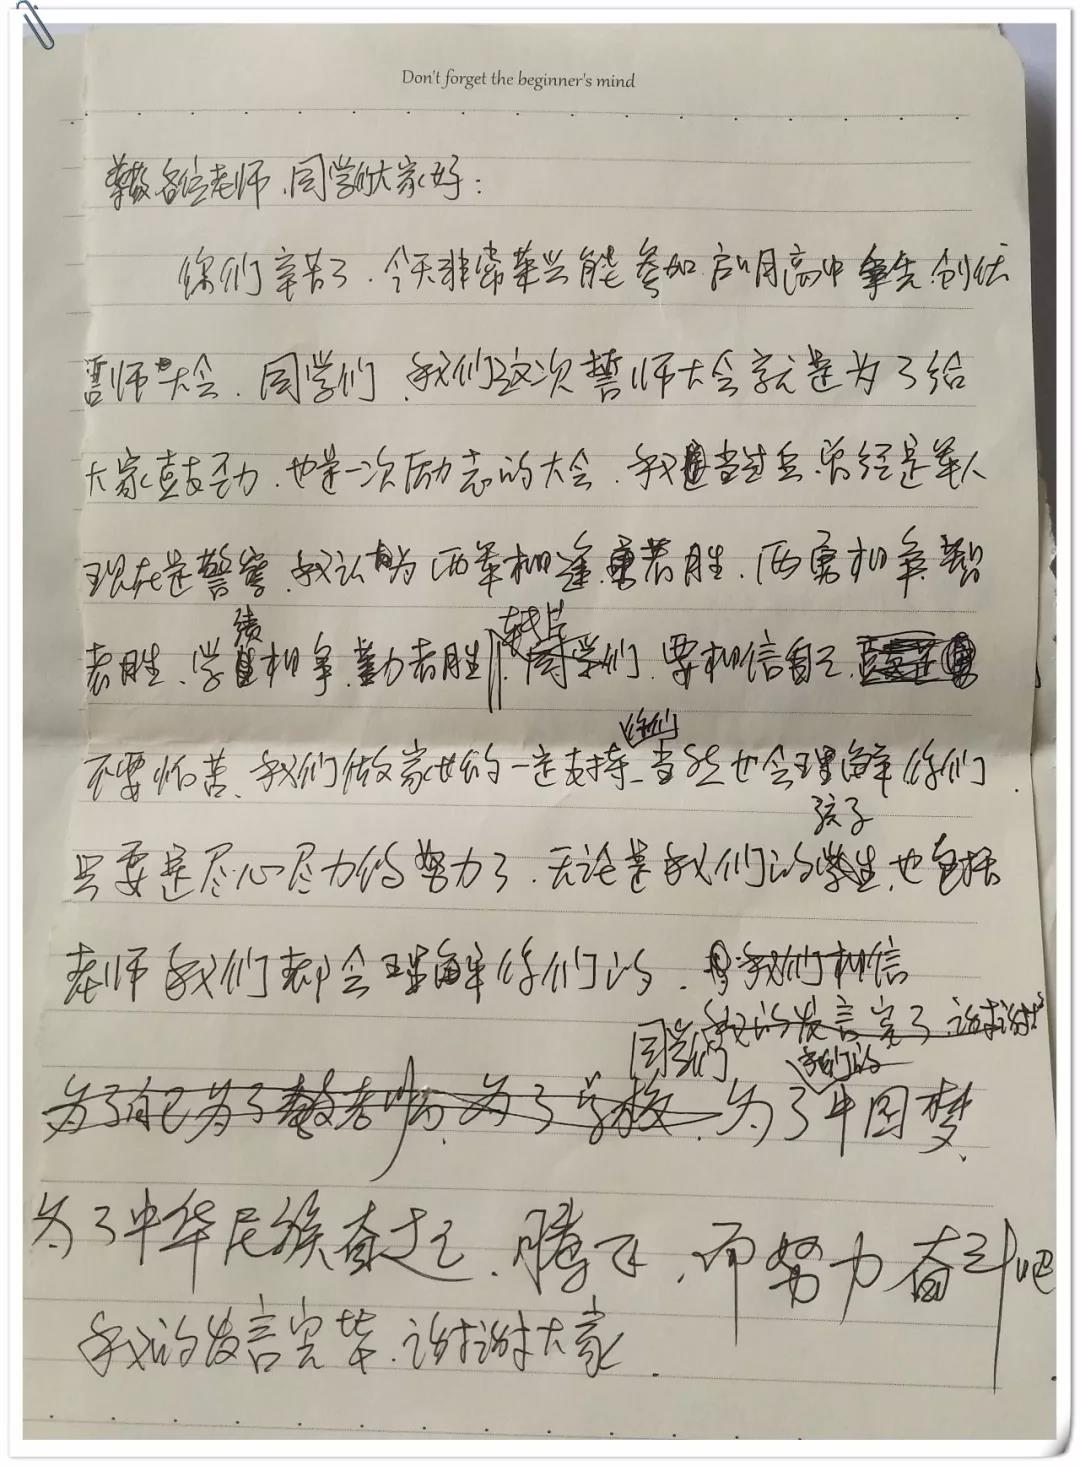 Don't forget the beginner's mind
尊敬各位老师、同学们大家好：
你们辛苦了、今天非常荣兴能参加启明高中争先创优
誓师大会、同学们、我们这次誓师大会就是为了给
大家鼓劲、也是一次励志的大会、我当过兵、曾经是军人
现在是警察、我认为两军相逢勇者胜、两勇相争智
者胜、学绩相争、勤者胜、同学们、要相信自己、
不要怕苦、我们做家长的一定支持你们、当然也会理解你们、
只要是尽心尽力的努力了、无论是我们的孩子、也包括
老师我们都会理解你们的、我们相信
我的发言完了、谢谢
同学们 我们的
为了自己为了教老师、为了学校、为了中国梦、
为了中华民族奋起、腾飞、而努力奋斗吧
我的发言完毕、谢谢大家.